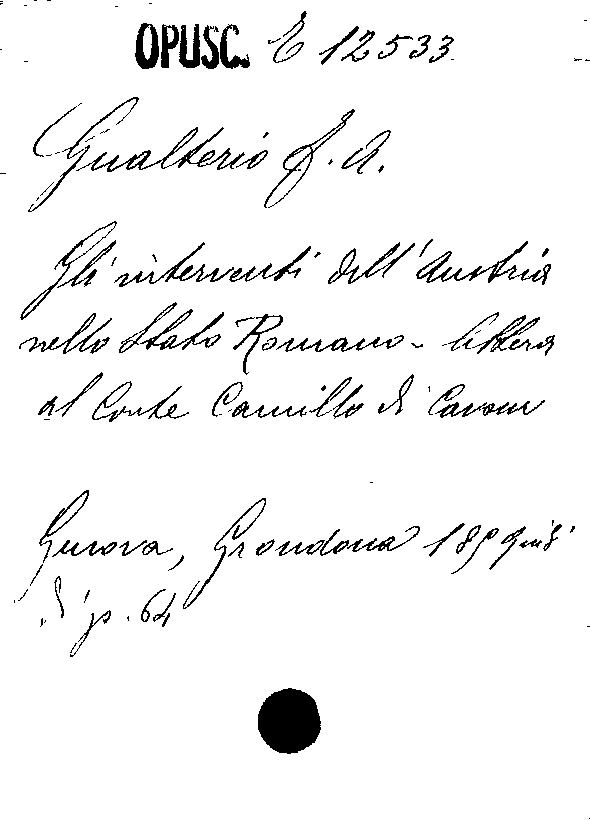 OPUSC. E 12533
Gualterio F. A.
Gli interventi dell'Austria
nello Stato Romano - lettera
al Conte Camillo di Cavour
Genova, Grondona 1859 in 8°
di p. 64